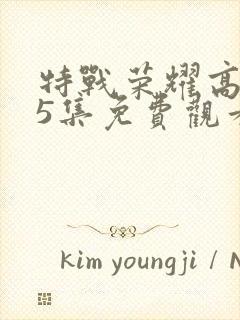 特戰榮耀高
5集免費觀
kim youngji / N